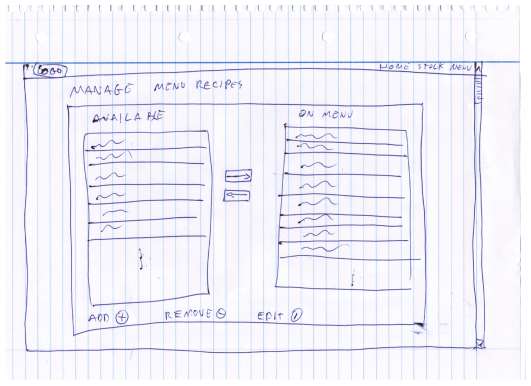 LOGO
HOME STOCK MENU
MANAGE MENU RECIPES
AVAILABLE
ON MENU
ADD +
REMOVE -
EDIT /